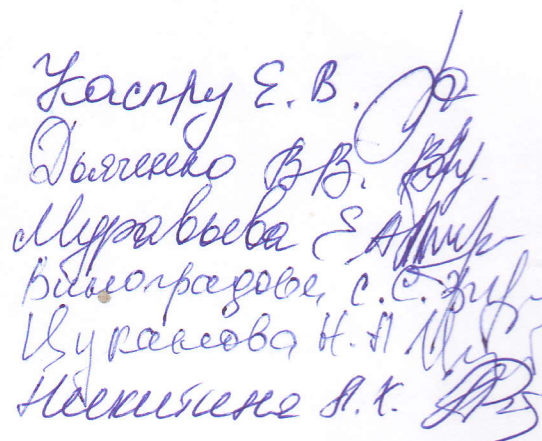 Каспру Е. В.
Дьяченко В.В.
Муравьева Е.А.
Виноградова С. С.
Цуканова Н. А
Никитина А. К.